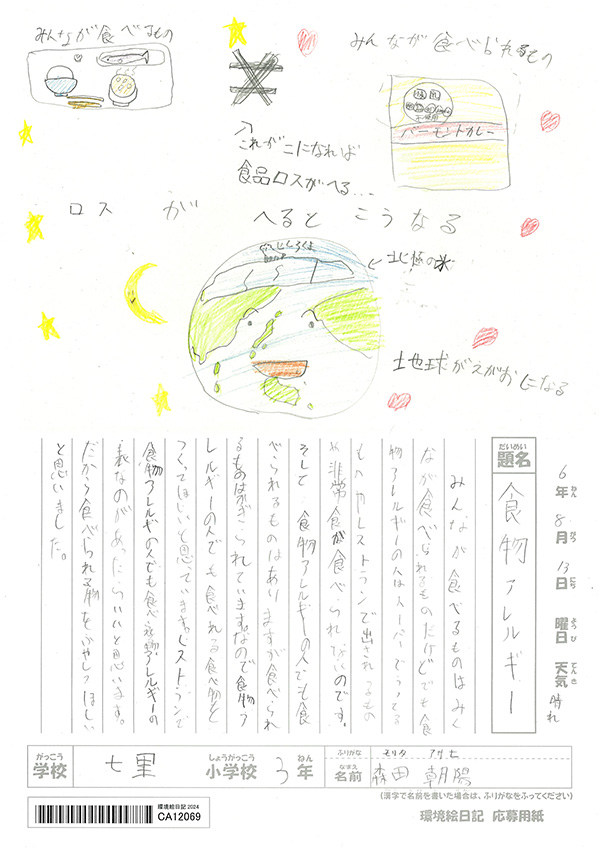 みんなが食べるもの
みんなが食べられるもの
卵 乳
不使用
バーモントカレー
これがこになれば
食品ロスがへる...
ロスがへるとこうなる
北極の氷
地球がえがおになる
6年 8月 13日 曜日 天気 晴れ
だいめい
題名 食物アレルギー
みんなが食べるものはみん
なが食べられるものだけどでも食
物アレルギーの人はスーパーでうってる
ものやレストランで出されるもの
や非常食が食べられないのです。
そして食物アレルギーの人でも食
べられるものはありますが食べられ
るものはかぎられています。なので食物ア
レルギーの人でも食べれる食べ物を
つくってほしいと思っています。レストランで
食物アレルギーの人でも食べ物アレルギーの
表なのがあったらいいと思います。
だから食べられる物をふやしてほしい
と思いました。
がっこう しょうがっこう ねん ふりがな モリタ アサヒ
学校 七里 小学校 3年 なまえ 名前 森田 朝陽
(漢字で名前を書いた場合は、ふりがなをふってください)
環境絵日記 2024
CA12069
環境絵日記 応募用紙